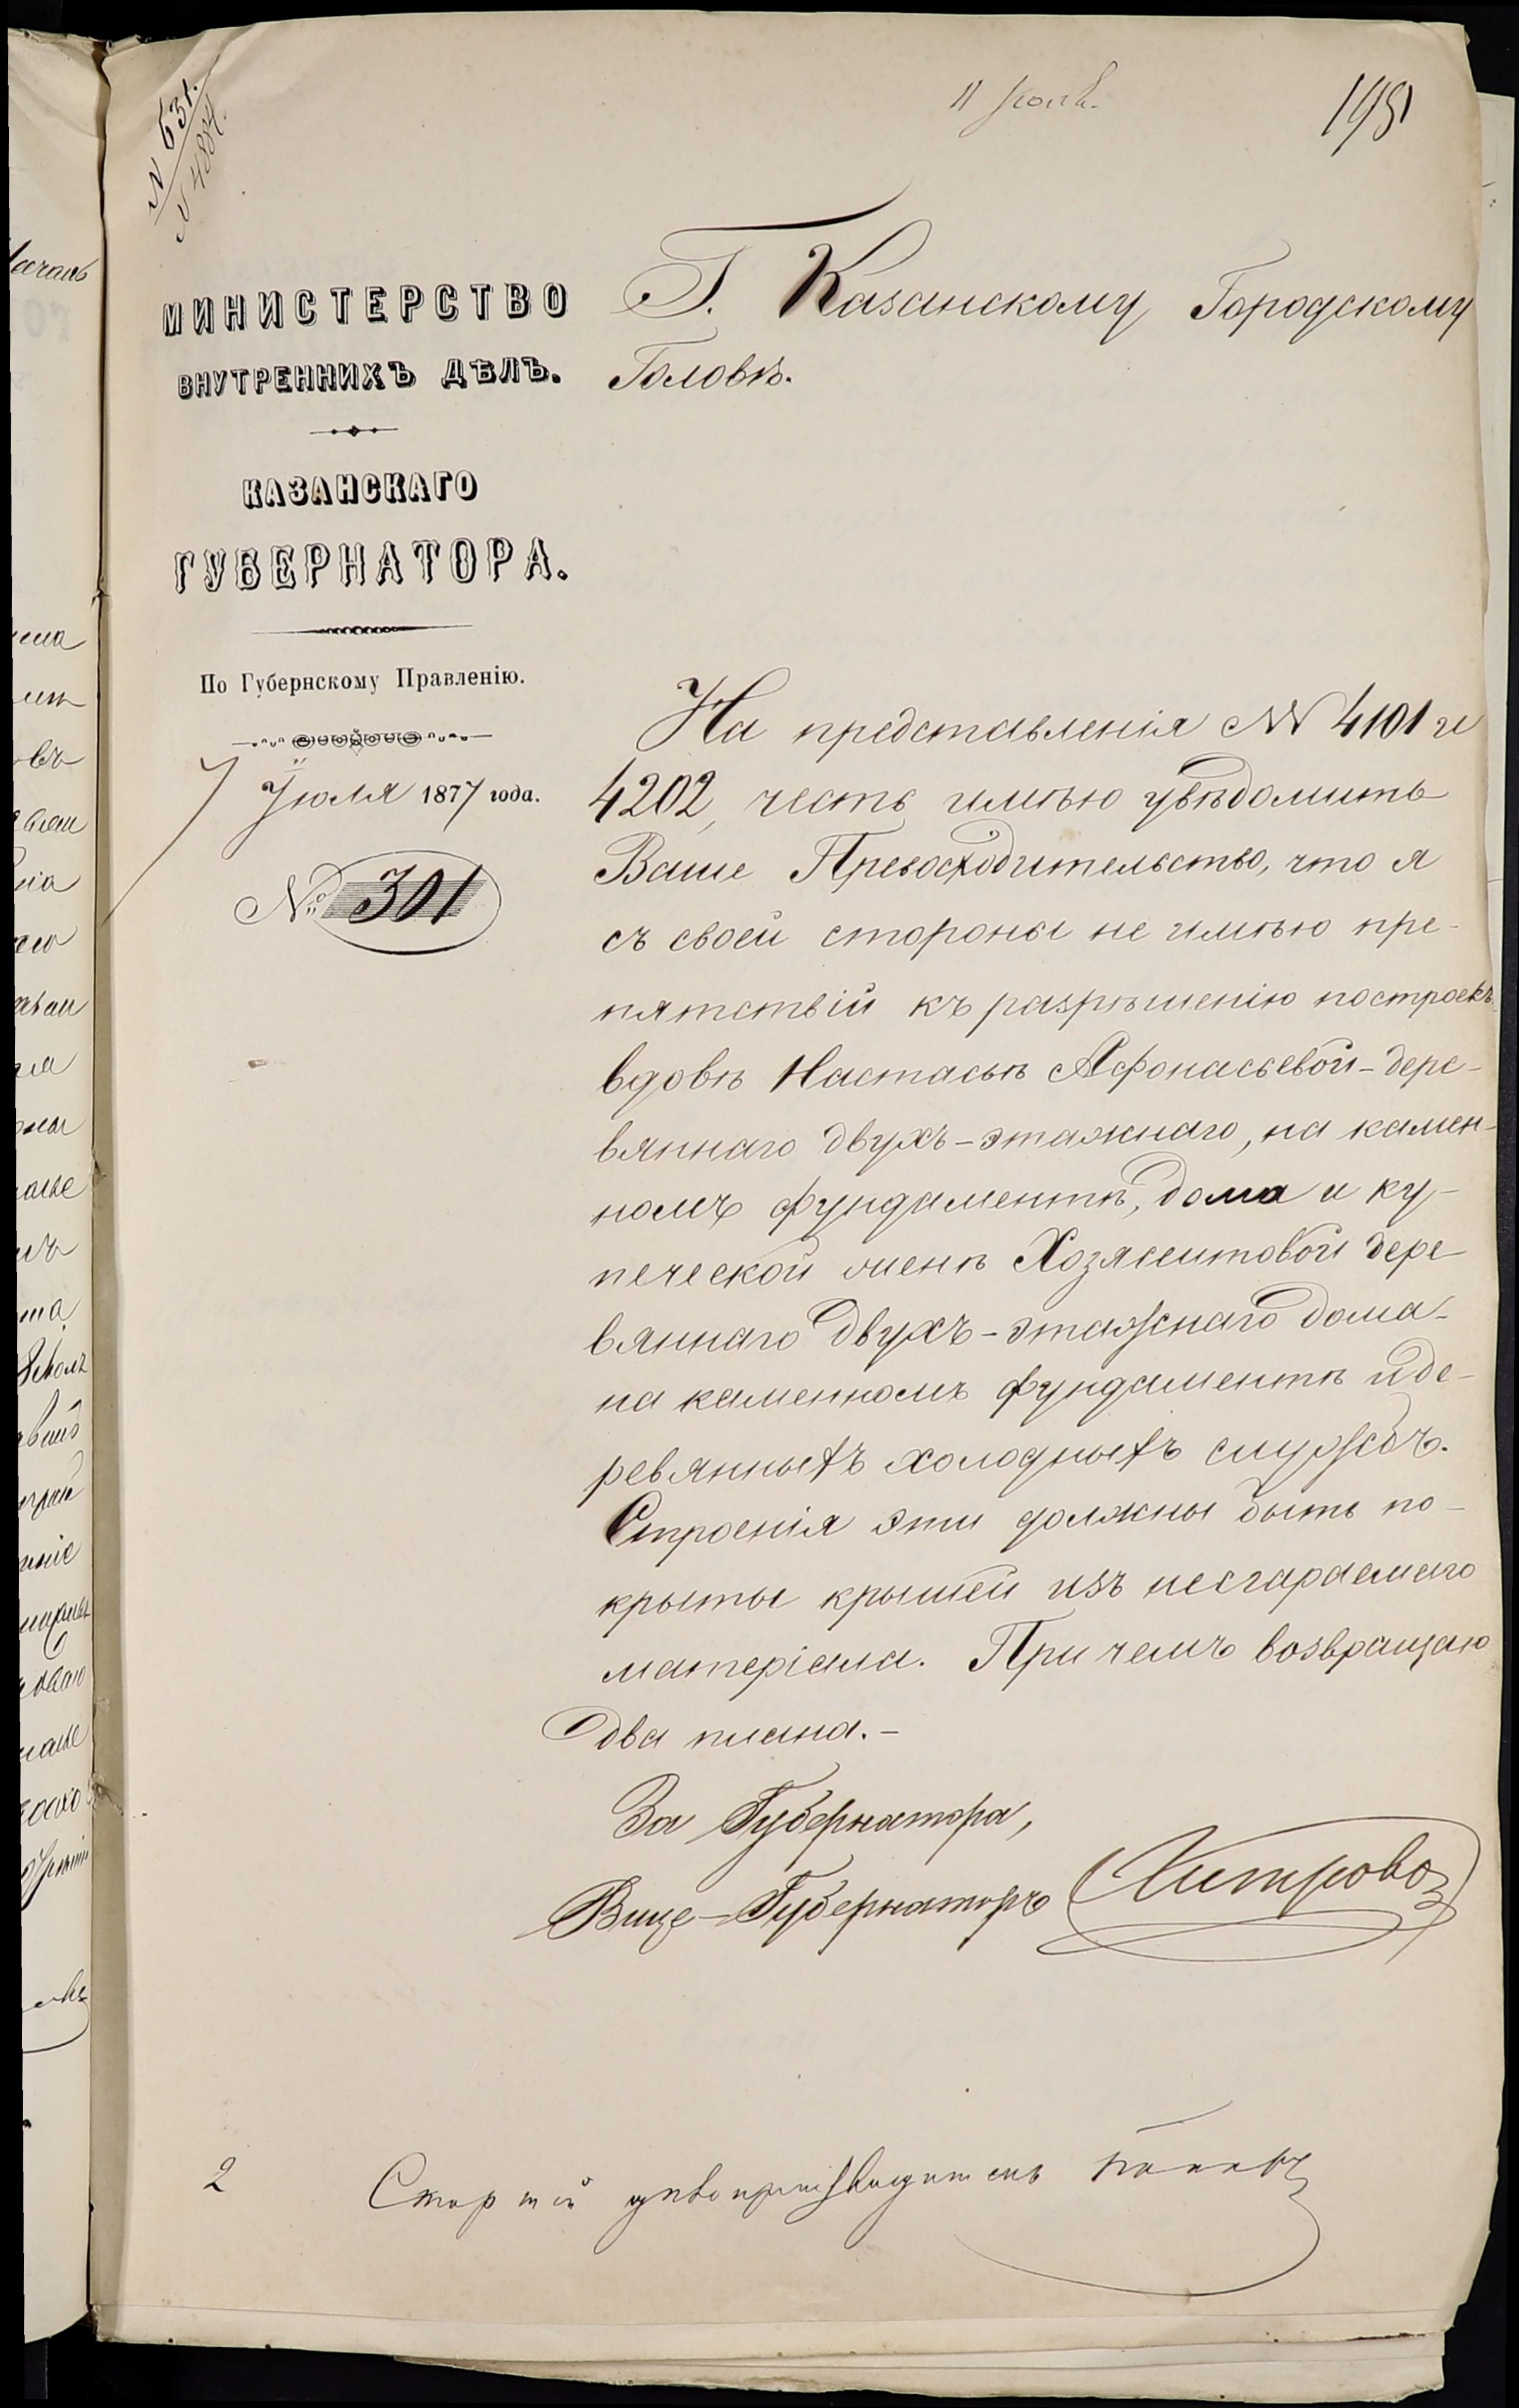 N 631.
N 4884.
11 Іюля.
МИНИСТЕРСТВО
ВНУТРЕННИХЪ ДѢЛЪ.
КАЗАНСКАГО
ГУБЕРНАТОРА.
По Губернскому Правленію.
7 Іюля 1877 года.
№ 301
Г. Казанскому Городскому
Головѣ.
На представленія NN 4101 и
4202, честь имѣю увѣдомить
Ваше Превосходительство, что я
съ своей стороны не имѣю пре-
пятствій къ разрѣшенію построекъ
вдовѣ Настасьѣ Афонасьевой - дере-
вяннаго двухъ-этажнаго, на камен-
номъ фундаментѣ, дома и ку-
печеской женѣ Хозясеитовой дере-
вяннаго двухъ-этажнаго дома -
на каменномъ фундаментѣ и де-
ревянныхъ холодныхъ службъ.
Строенія эти должны быть по-
крыты крышей изъ несгараемаго
матеріала. При чемъ возвращаю
два плана.-
За Губернатора,
Вице-Губернаторъ Хитрово
2 Старшій дѣлопроизводитель Поповъ